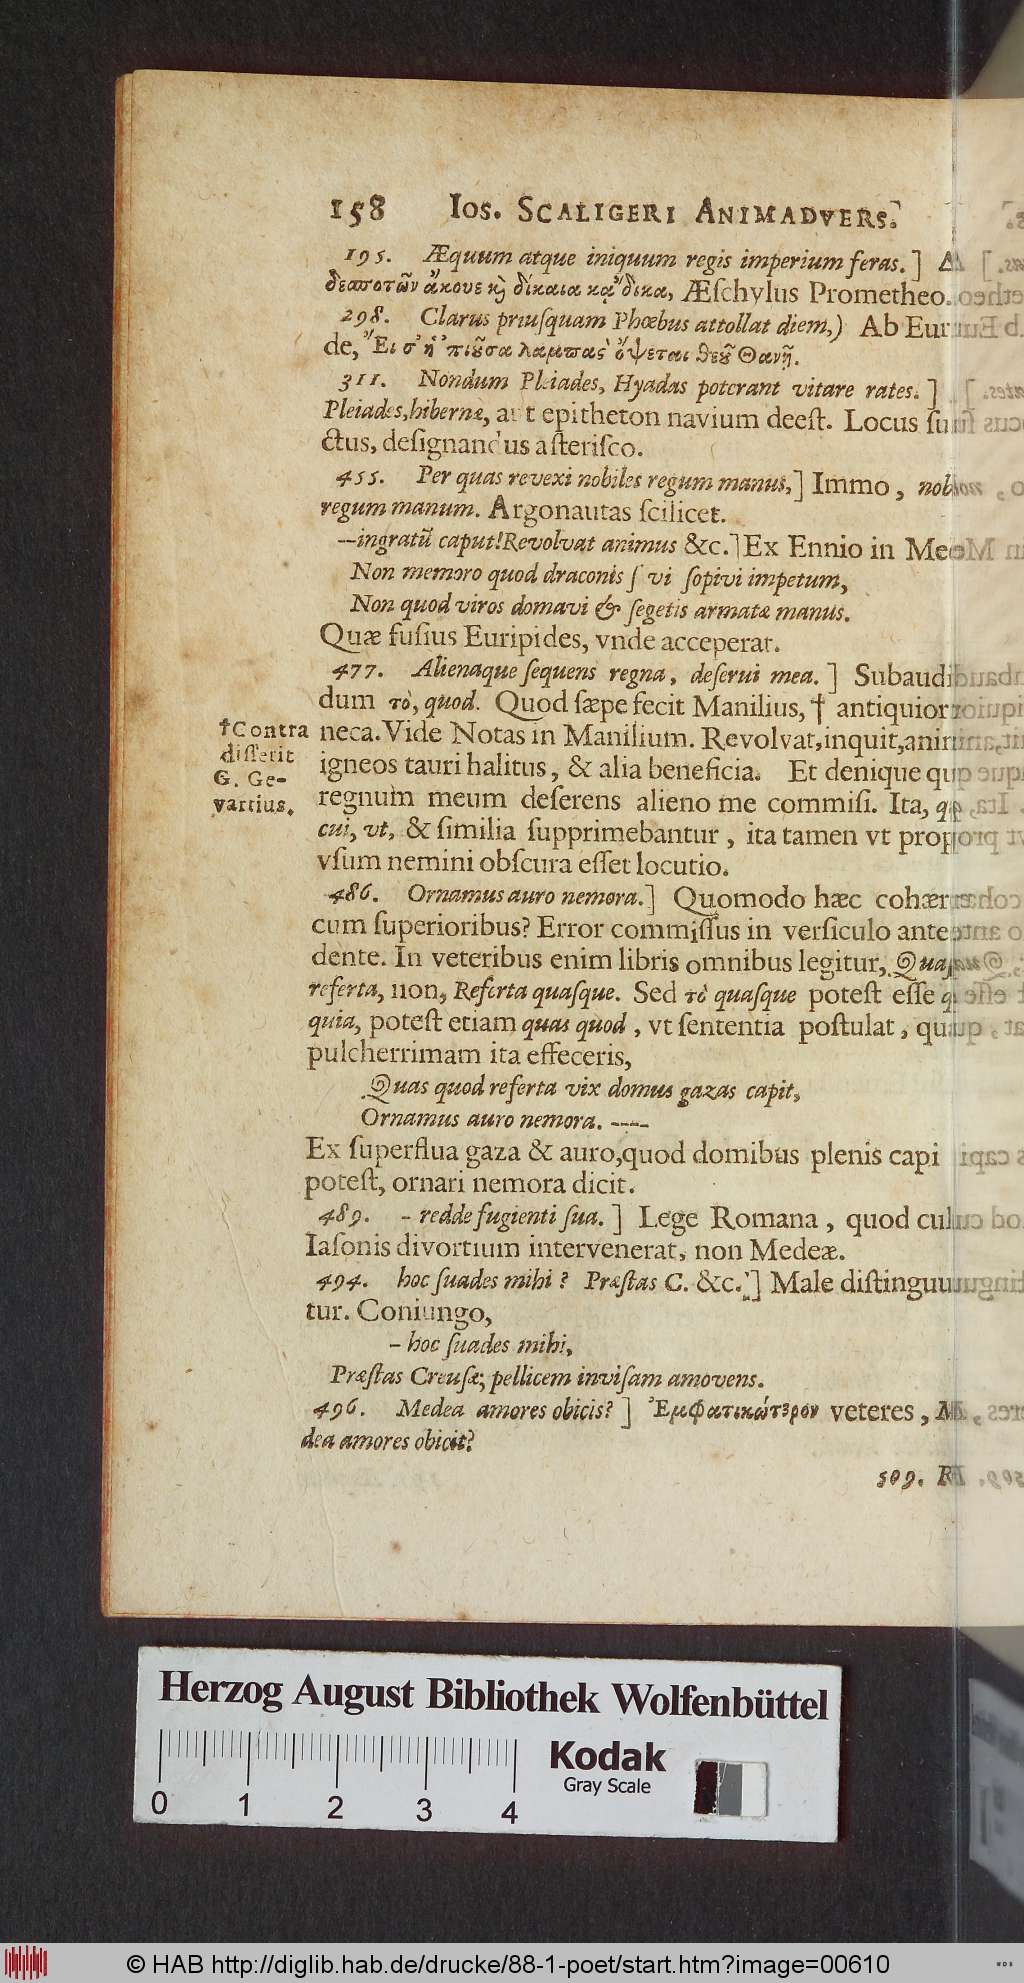 158 Ios. SCALIGERI ANIMADVERS.
195. Æquum atque iniquum regis imperium feras.]
δεασποτῶν ἄκουε κὶ δίκαια κᾄδικα, Æſchylus Prometheo.
298. Clarus priuſquam Phœbus attollat diem,) Ab Eur
de, Ει σ' ἡ 'πιοῦσα λαμπὰς ὄψεται θεοῦ Θανῇ.
311. Nondum Pleiades, Hyadas poterant vitare rates.]
Pleiades, hibernæ, aut epitheton navium deeſt. Locus
ctus, deſignandus aſteriſco.
455. Per quas revexi nobiles regum manus,] Immo,
regum manum. Argonautas ſcilicet.
--ingratū caput! Revolvat animus &c.] Ex Ennio in
Non memoro quod draconis ſ vi ſopivi impetum,
Non quod viros domavi & ſegetis armatæ manus.
Quæ fuſius Euripides, vnde acceperat.
477. Alienaque ſequens regna, deſerui mea.] Subaudi
dum τὸ, quod. Quod ſæpe fecit Manilius, † antiquior
†Contra
diſſerit
G. Ge-
vartius.
neca. Vide Notas in Manilium. Revolvat, inquit,
igneos tauri halitus, & alia beneficia. Et denique
regnum meum deſerens alieno me commiſi. Ita,
cui, vt, & ſimilia ſupprimebantur, ita tamen vt
vſum nemini obſcura eſſet locutio.
486. Ornamus auro nemora.] Quomodo hæc cohær
cum ſuperioribus? Error commiſſus in verſiculo ante
dente. In veteribus enim libris omnibus legitur,
referta, non, Referta quaſque. Sed τὸ quaſque poteſt eſſe
quia, poteſt etiam quas quod, vt ſententia poſtulat,
pulcherrimam ita effeceris,
Quas quod referta vix domus gazas capit,
Ornamus auro nemora. ----
Ex ſuperflua gaza & auro, quod domibus plenis capi
poteſt, ornari nemora dicit.
489. - redde fugienti ſua.] Lege Romana, quod
Iaſonis divortium intervenerat, non Medeæ.
494. hoc ſuades mihi? Præſtas C. &c.] Male diſtinguu
tur. Coniungo,
- hoc ſuades mihi,
Præſtas Creuſæ; pellicem inviſam amovens.
496. Medea amores obicis?] Ἐμφατικώτερον veteres,
dea amores obicit?
509.
Herzog August Bibliothek Wolfenbüttel
0 1 2 3 4
Kodak
Gray Scale
© HAB http://diglib.hab.de/drucke/88-1-poet/start.htm?image=00610